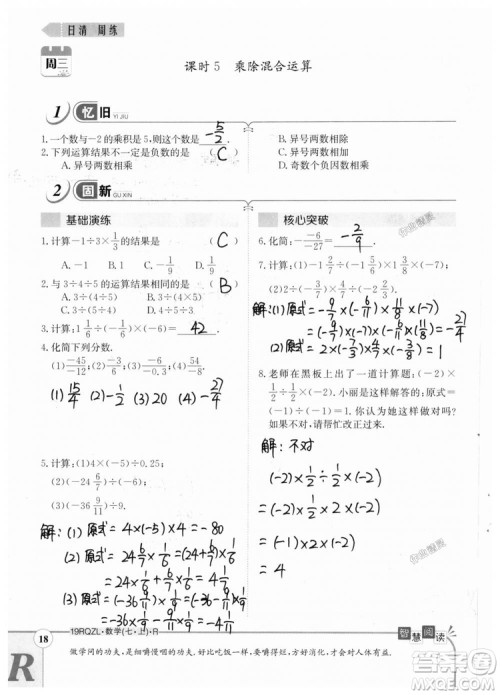 日清 周练
周三
课时5 乘除混合运算
1 忆 旧 YI JIU
1.一个数与-2的乘积是5,则这个数是 -5/2
2.下列运算结果不一定是负数的是 ( C )
A.异号两数相乘
B.异号两数相除
C.异号两数相加
D.奇数个负因数相乘
2 固 新 GU XIN
基础演练
1.计算-1÷3×1/3的结果是 ( C )
A.-1 B.-1 C.-1/9 D.1/9
2.与3÷4÷5的运算结果相同的是 ( B )
A.3÷(4÷5) B.3÷(4×5)
C.3÷(5÷4) D.4÷(3÷5)
3.计算:1 1/6÷(-1/6)×(-6)= 42 .
4.化简下列分数.
(1)-45/-12;(2)-3/6;(3)-6/-0.3;(4)54/-8.
(1) 15/4 (2) -1/2 (3) 20 (4) -27/4
5.计算:(1)4×(-5)÷0.25;
(2)(-24 6/7)÷(-6);
(3)-36 9/11÷9.
解:(1) 原式= 4×(-5)×4 = -80
(2) 原式=(24+6/7)×1/6
=24×1/6+6/7×1/6=4 1/7
(3) 原式=-(36+9/11)×1/9
=-(36×1/9+9/11×1/9)=-4 1/11
核心突破
6.化简:-(-6)/(-27)= -2/9 .
解:(1)原式=-9/7×(-6/7)×11/8×(-7)
=(-9/7)×(-6/7)×11/8×(-7)=-27/4
(2)原式= 2×(-7/3)×4/7×(-3/8) = 1
8.老师在黑板上出了一道计算题:(-2)×
1/2÷1/2×(-2).小丽是这样解答的:原式=
(-1)÷(-1)=1.你认为她这样做对吗?
若不对,请帮忙改正过来.
解:不对
(-2)×1/2÷1/2×(-2)
=(-2)×1/2×2×(-2)
=(-1)×2×(-2)
= 4
18
19RQZL·数学(七·上)·R
智慧阅读
R
做学问的功夫,是细嚼慢咽的功夫。好比吃饭一样,要嚼得烂,方好消化,才会对人体有益。